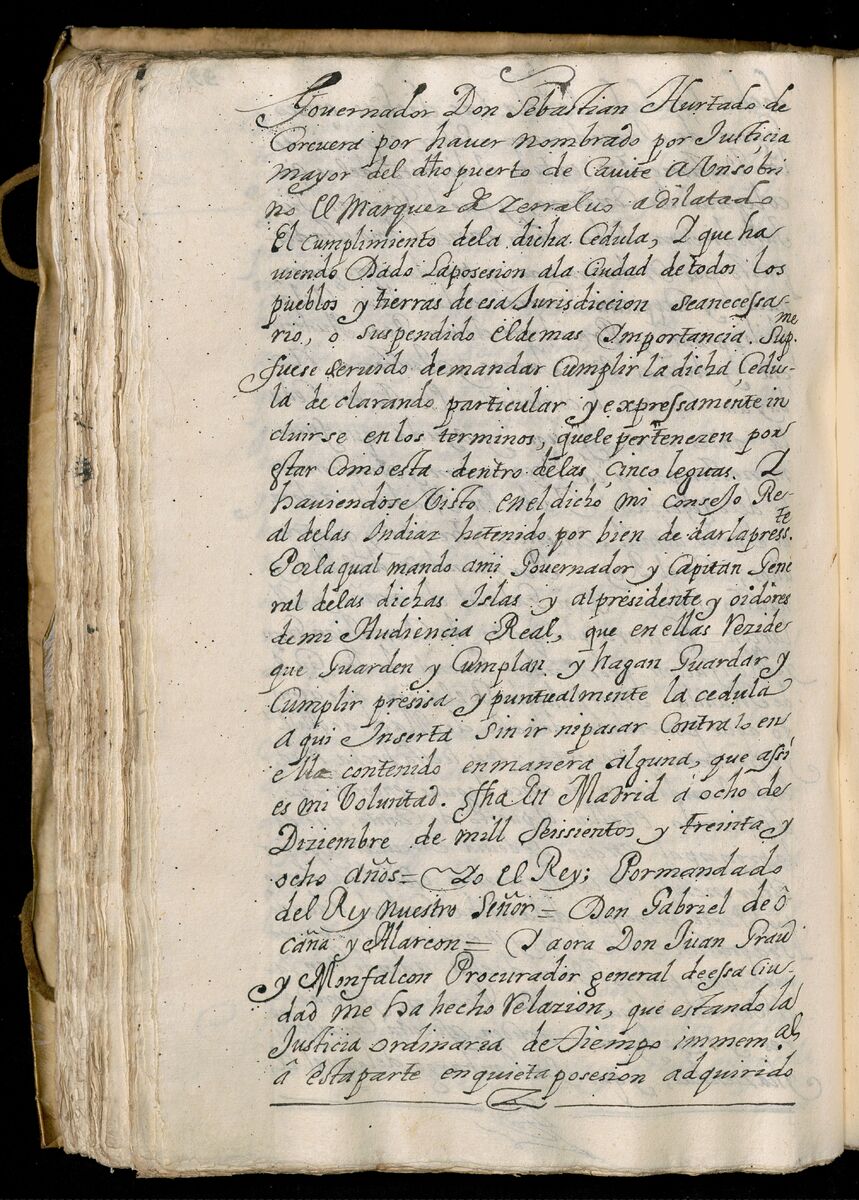 Governador Don Sebastian Hurtado de
Corcuera por haver nombrado por Justicia
mayor del dho puerto de Cavite A Vn sobri
no El Marquez de Zerralvo a dilatado
El cumplimiento dela dicha Cedula, Y que ha
viendo Dado Laposesion ala Ciudad de todos los
pueblos y tierras de esa Jurisdiccion seanecessa-
rio, o suspendido eldemas Importancia. Supme.
fuese servido de mandar Cumplir la dicha Cedu-
la de clarando particular y expressamente in
cluirse en los terminos, quele pertenezen por
estar Como esta dentro delas cinco leguas. Y
haviendose Visto en el dicho mi consejo Re-
al delas Indias hetenido por bien de dar la presste.
Por la qual mando ami Governador y Capitan Gene
ral delas dichas Islas y alpresidente y oidores
de mi Audiencia Real, que en ellas Rezide
que Guarden y Cumplan y hagan Guardar y
Cumplir presisa y puntualmente la cedula
Aqui Inserta Sin ir nipasar Contra lo en
ella contenido en manera alguna, que assi
es mi Voluntad. ffha En Madrid á ocho de
Diziembre de mill Seissientos y treinta y
ocho años= Yo El Rey; Pormandado
del Rey nuestro Señor= Don Gabriel de ô
caña y Alarcon= Y aora Don Juan Grau
y Monfalcon Procurador general de essa Ciu-
dad me ha hecho Relazion, que estando la
Justicia ordinaria de tiempo immem.al
â esta parte en quieta posesion adquirido